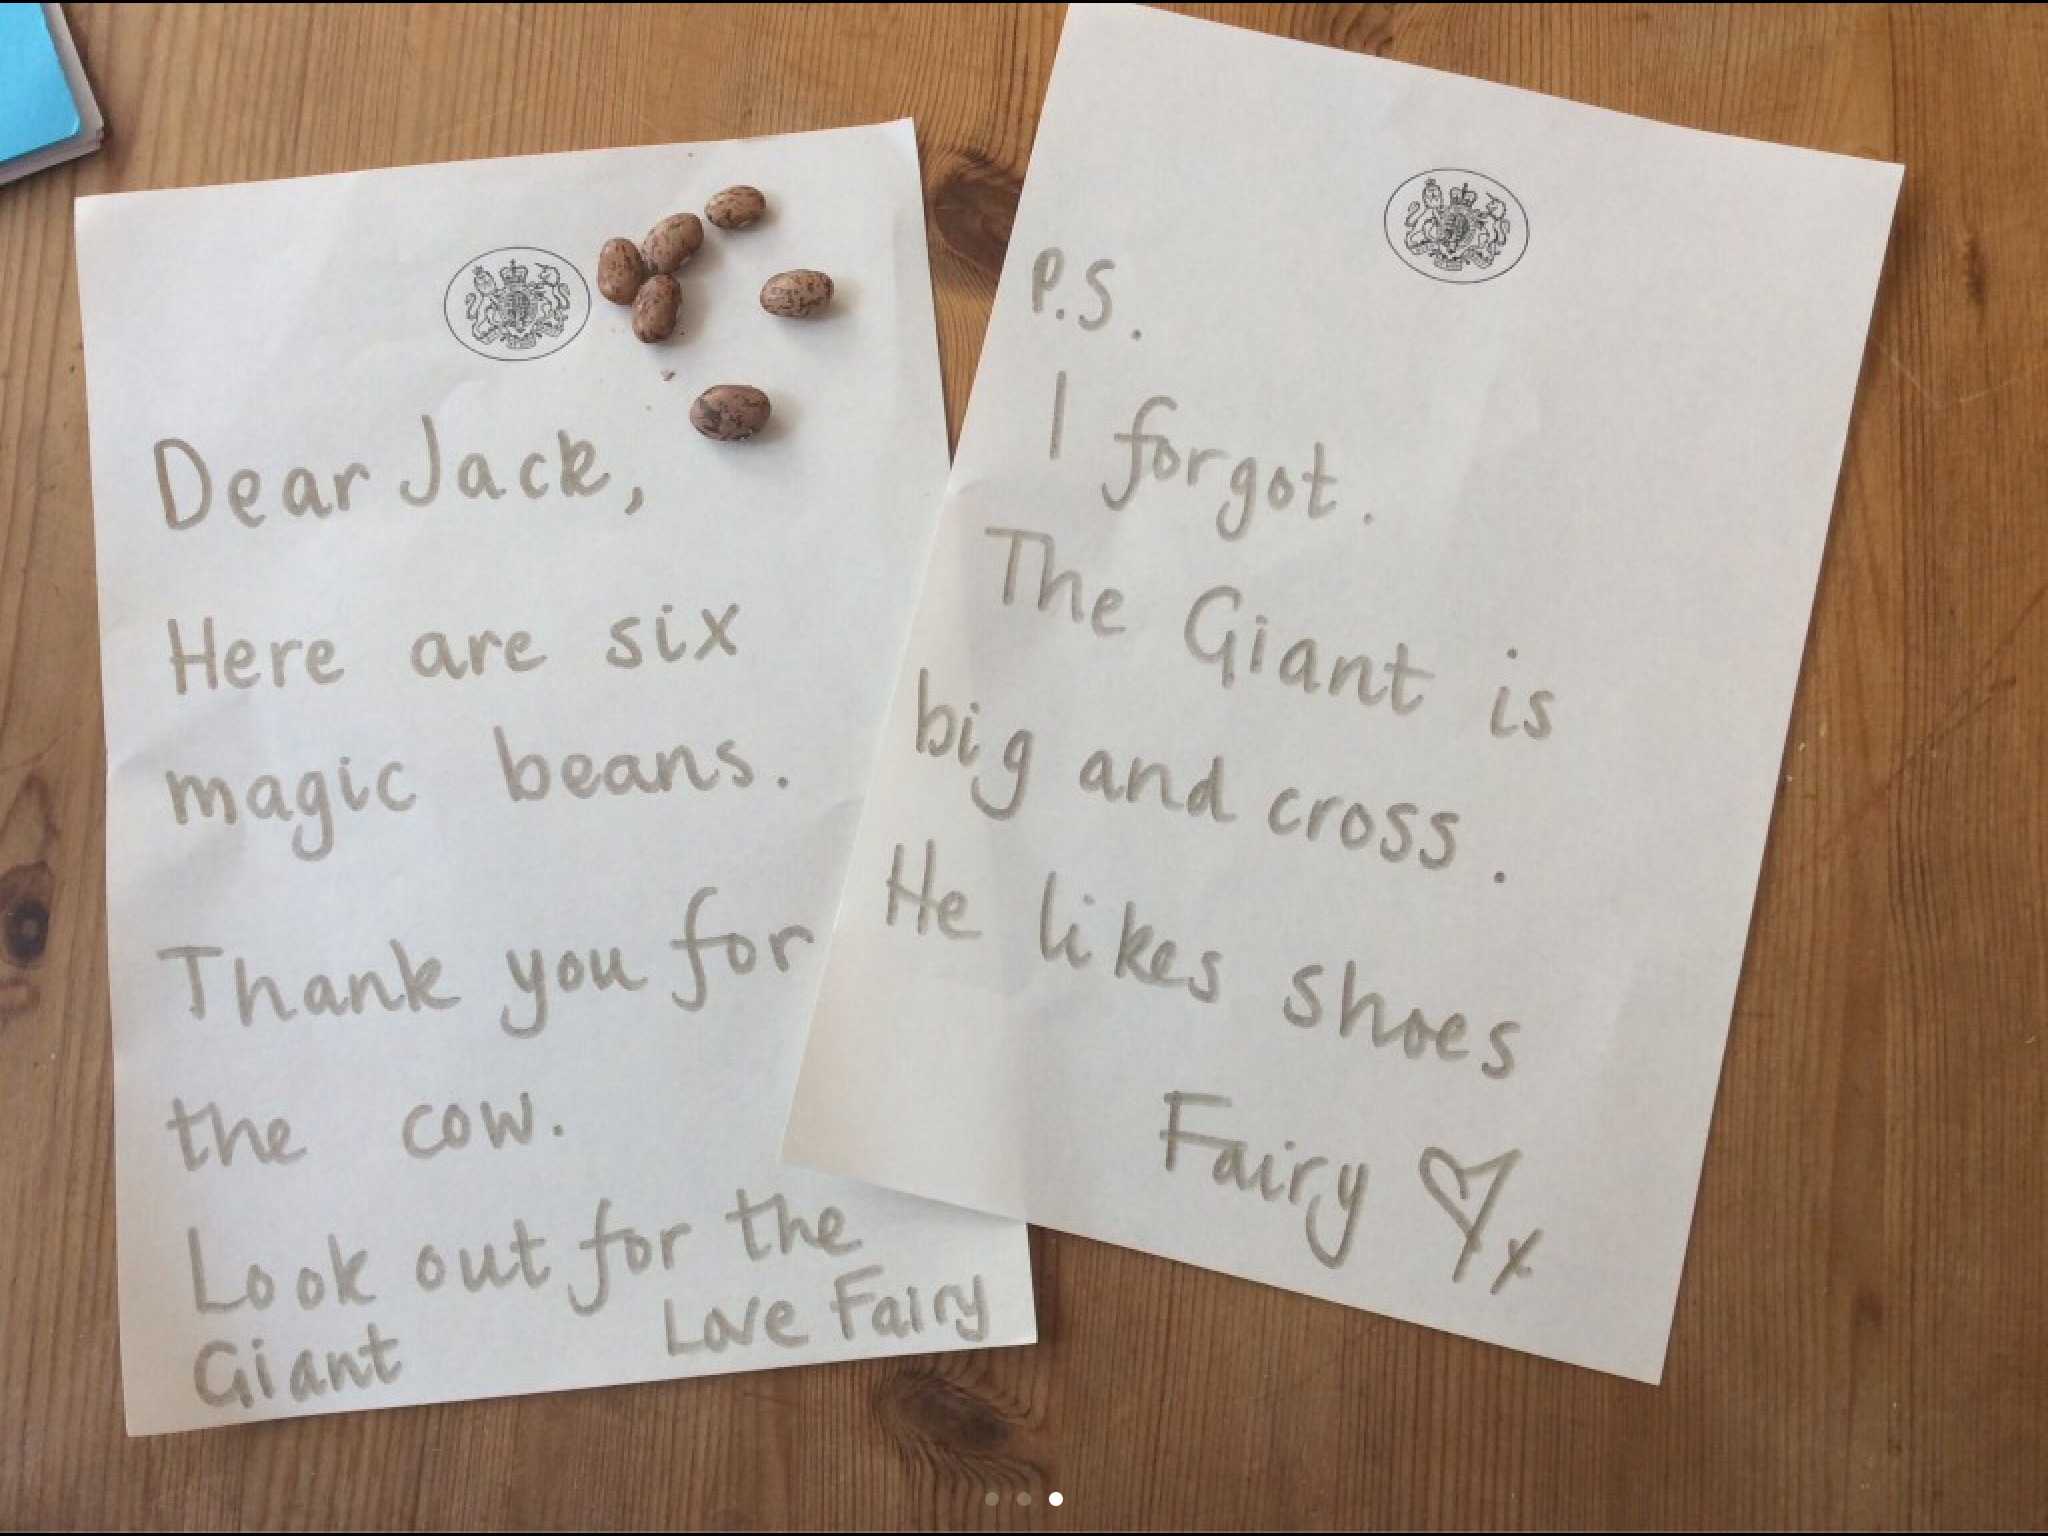 Dear Jack,
Here are six
magic beans.
Thank you for
the cow.
Look out for the
Giant
Love Fairy
P.S.
I forgot.
The Giant is
big and cross.
He likes shoes
Fairy ♡x